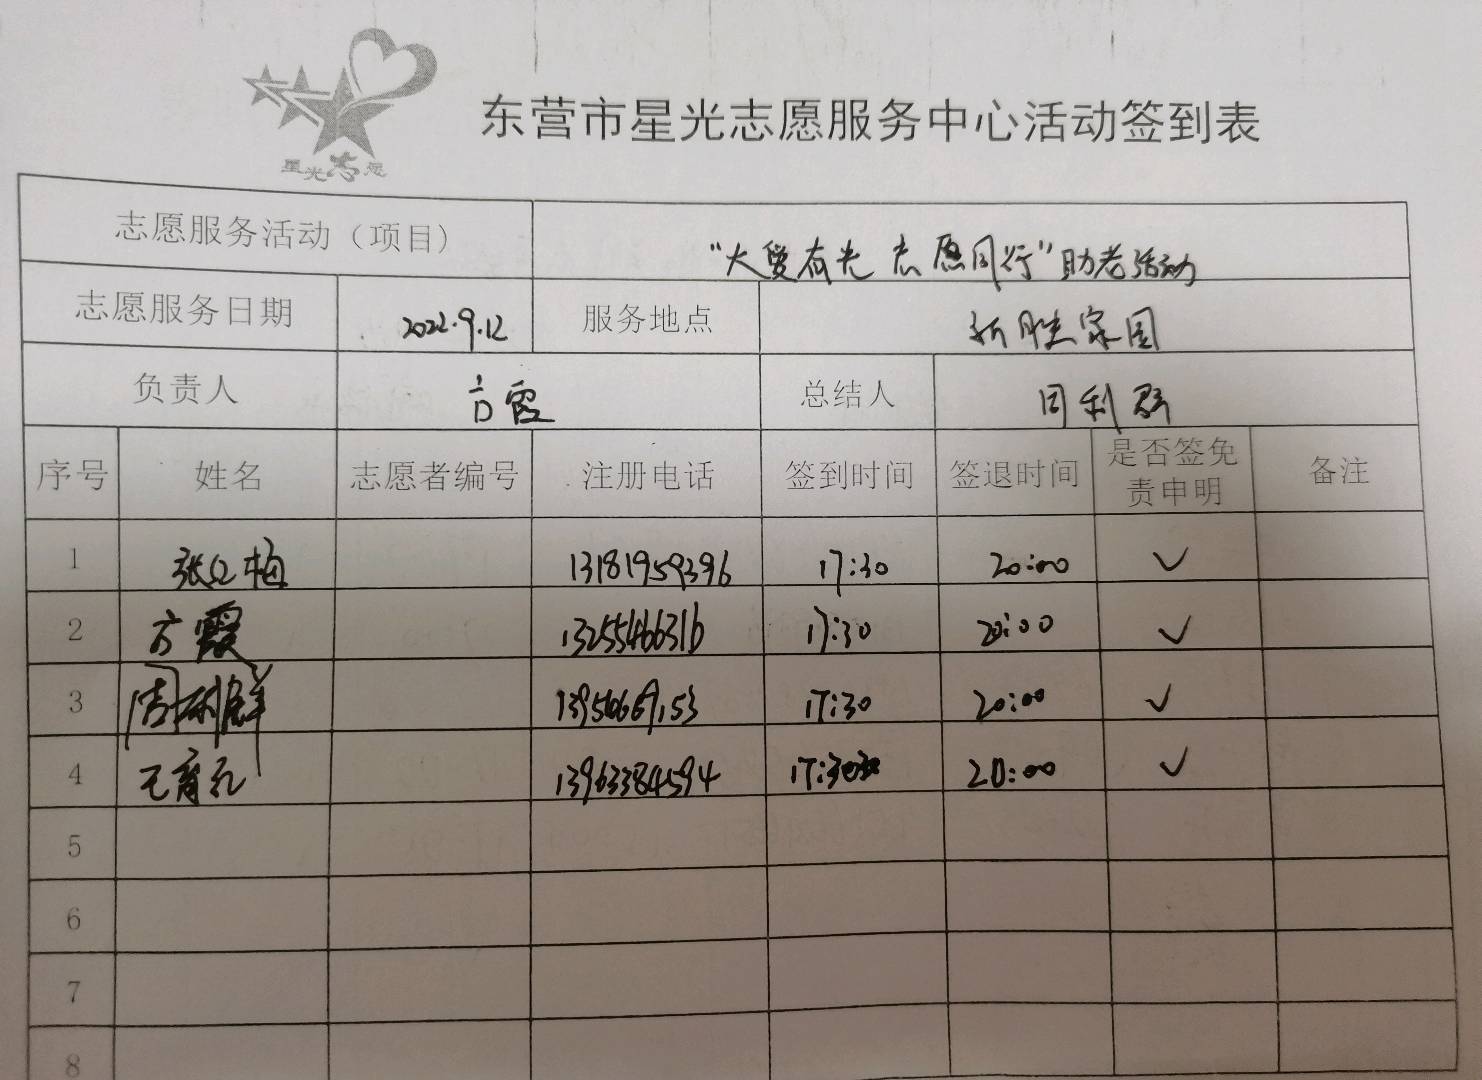 星光志愿
东营市星光志愿服务中心活动签到表
志愿服务活动（项目） “大爱有光 志愿同行”助老活动
志愿服务日期 2022.9.12 服务地点 新胜家园
负责人 方霞 总结人 周利群
序号 姓名 志愿者编号 注册电话 签到时间 签退时间 是否签免责申明 备注
1 张红梅 13181959396 17:30 20:00 ✓
2 方霞 13255466316 17:30 20:00 ✓
3 周利群 17:30 20:00 ✓
4 13963384594 17:30 20:00 ✓
5
6
7
8